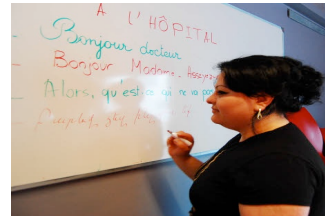 A L'HÔPITAL
- Bonjour docteur
- Bonjour Madame. Assey
- Alors, qu'est-ce qui ne va pas
-